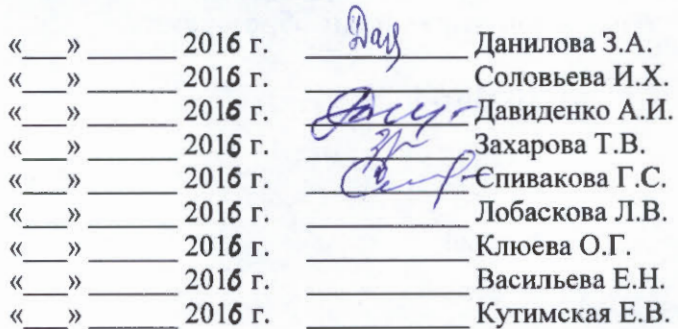 «___» ________ 2016 г. ____________ Данилова З.А.
«___» ________ 2016 г. ____________ Соловьева И.Х.
«___» ________ 2016 г. ____________ Давиденко А.И.
«___» ________ 2016 г. ____________ Захарова Т.В.
«___» ________ 2016 г. ____________ Спивакова Г.С.
«___» ________ 2016 г. ____________ Лобаскова Л.В.
«___» ________ 2016 г. ____________ Клюева О.Г.
«___» ________ 2016 г. ____________ Васильева Е.Н.
«___» ________ 2016 г. ____________ Кутимская Е.В.